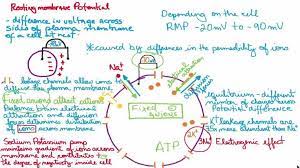 Resting membrane Potential
- difference in voltage across
sides of plasma membrane
of a cell at rest
Depending on the cell
RMP -20mV to -90mV
*caused by differences in the permeability of ions
Na+
K+ leakage channels allow ions to
diffuse the plasma membrane,
Fixed anions attract cations
Plasma
attraction and diffusion
determines distribution
of ions across membrane
Sodium Potassium pump
maintains gradient of ions across
membrane and contributes to
the degree of negativity inside cell
Fixed
anions
ATP
3Na+
2K+
Equilibrium - different
number of charges
Potential difference
K+ leakage channels are
more abundant than Na+
Electrogenic effect